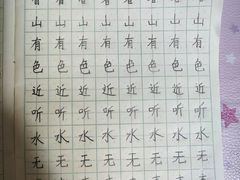 山山山山山山山山
有有有有有有有有
色色色色色色色色
近近近近近近近近
听听听听听听听听
水水水水水水水水
无无无无无无无无